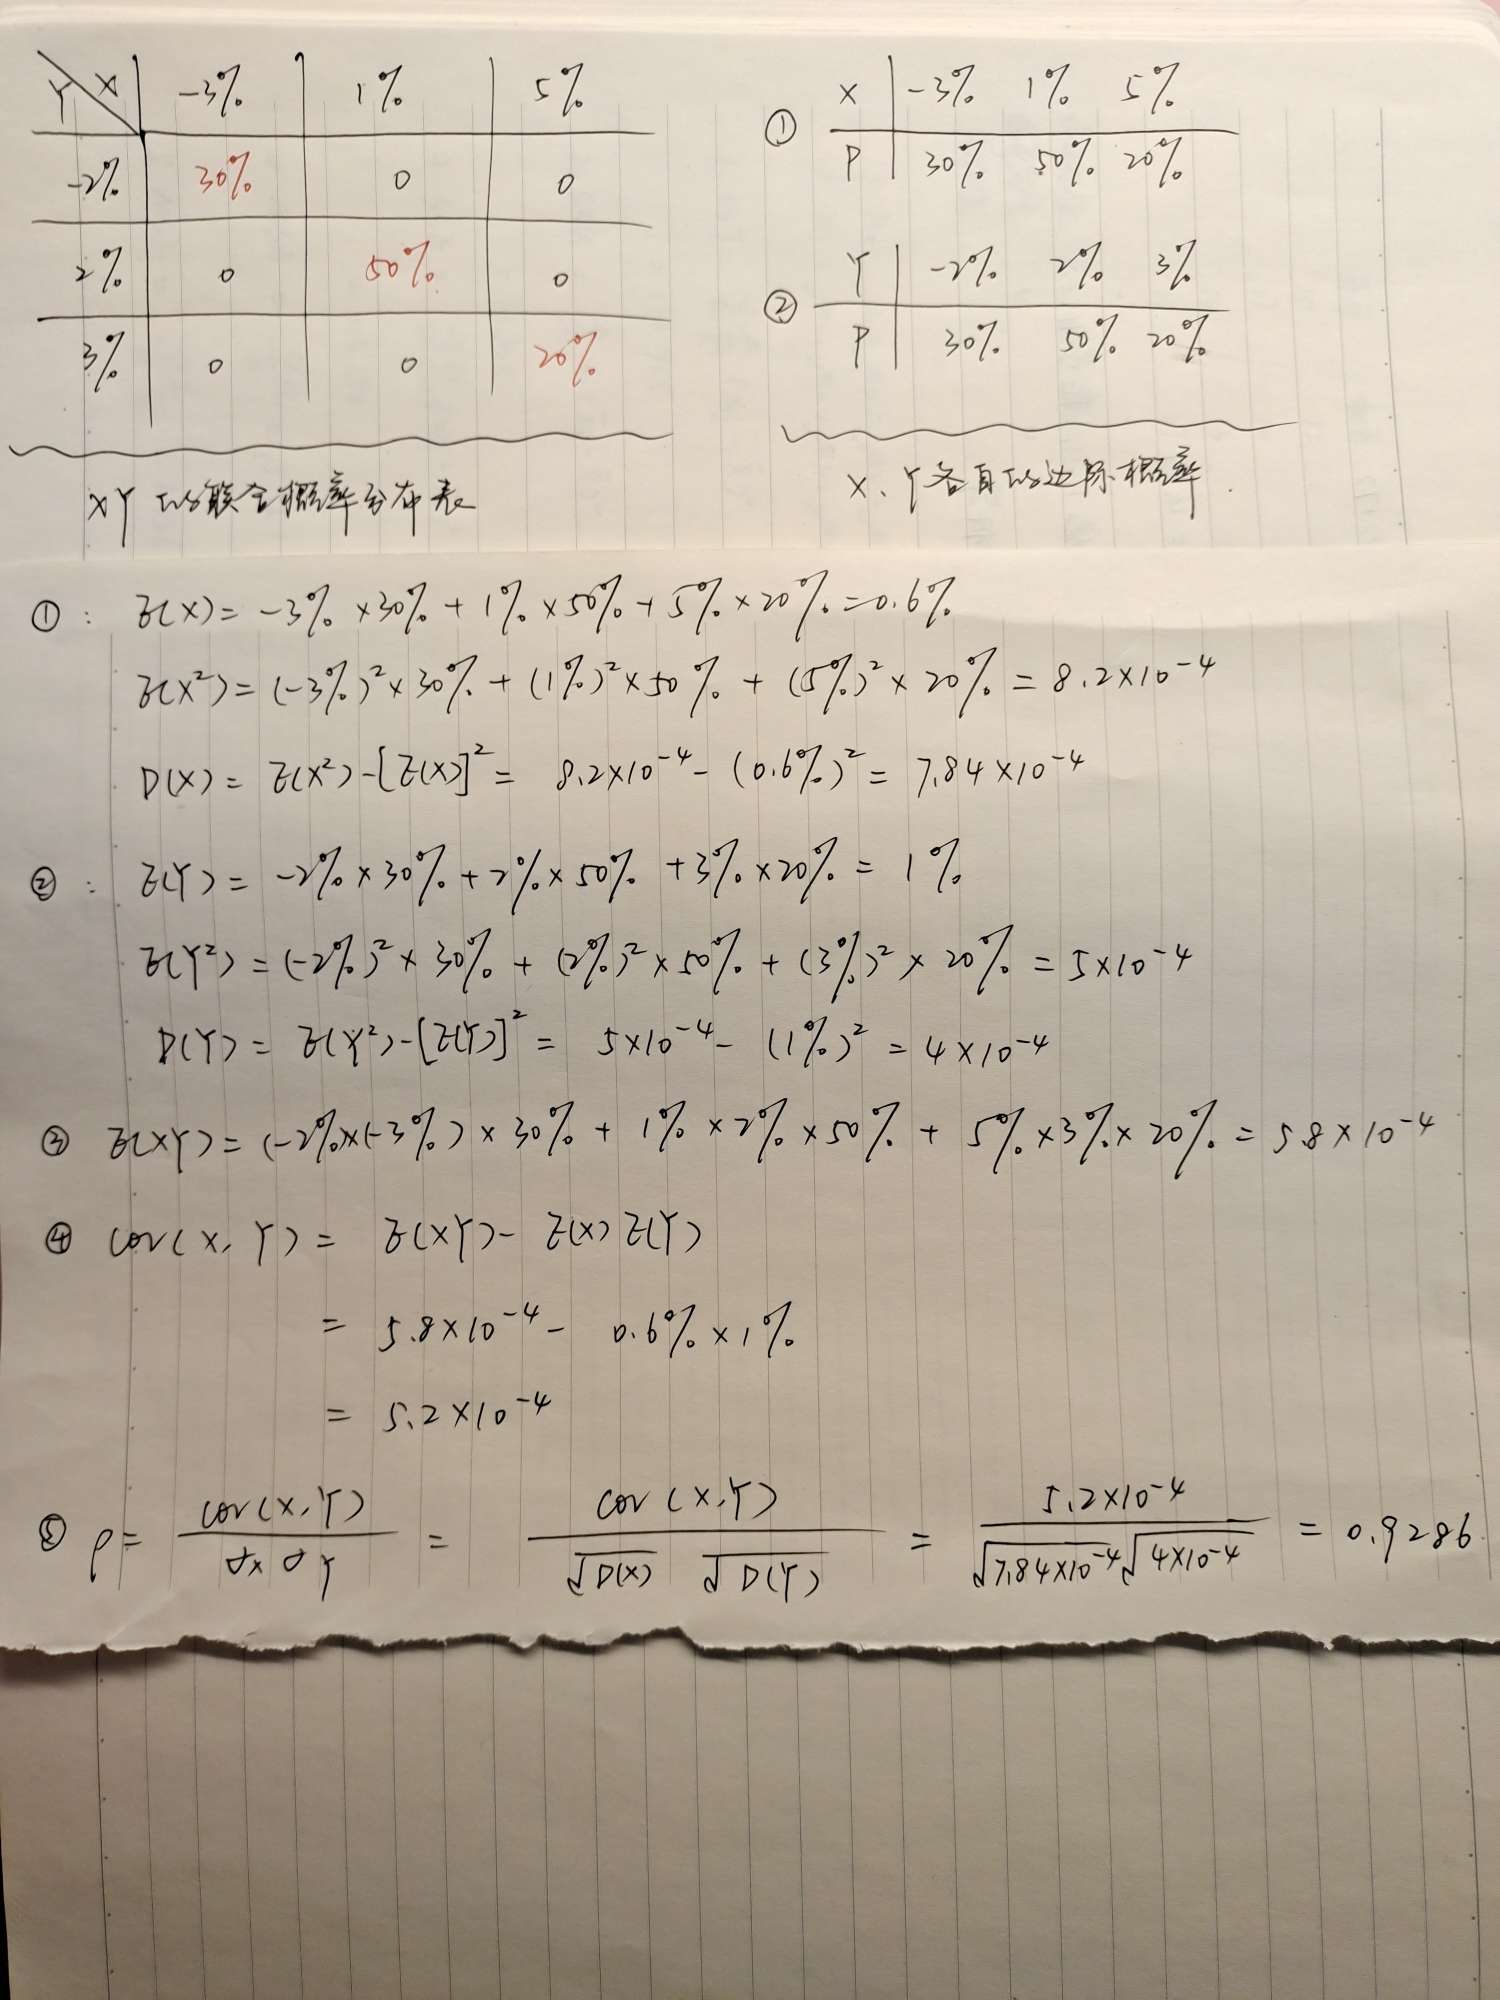 Y X -3% 1% 5%
-2% 30% 0 0
2% 0 50% 0
3% 0 0 20%
XY的联合概率分布表
① X -3% 1% 5%
P 30% 50% 20%
② Y -2% 2% 3%
P 30% 50% 20%
X、Y各自的边际概率.
①: E(X) = -3% × 30% + 1% × 50% + 5% × 20% = 0.6%
E(X²) = (-3%)² × 30% + (1%)² × 50% + (5%)² × 20% = 8.2×10⁻⁴
D(X) = E(X²) - [E(X)]² = 8.2×10⁻⁴ - (0.6%)² = 7.84×10⁻⁴
②: E(Y) = -2% × 30% + 2% × 50% + 3% × 20% = 1%
E(Y²) = (-2%)² × 30% + (2%)² × 50% + (3%)² × 20% = 5×10⁻⁴
D(Y) = E(Y²) - [E(Y)]² = 5×10⁻⁴ - (1%)² = 4×10⁻⁴
③ E(XY) = (-2%×(-3%) × 30% + 1% × 2% × 50% + 5% × 3% × 20% = 5.8×10⁻⁴
④ cov(X, Y) = E(XY) - E(X)E(Y)
= 5.8×10⁻⁴ - 0.6% × 1%
= 5.2×10⁻⁴
⑤ ρ = cov(X,Y) / σx σY = cov(X,Y) / √D(X) √D(Y) = 5.2×10⁻⁴ / √7.84×10⁻⁴ √4×10⁻⁴ = 0.9286